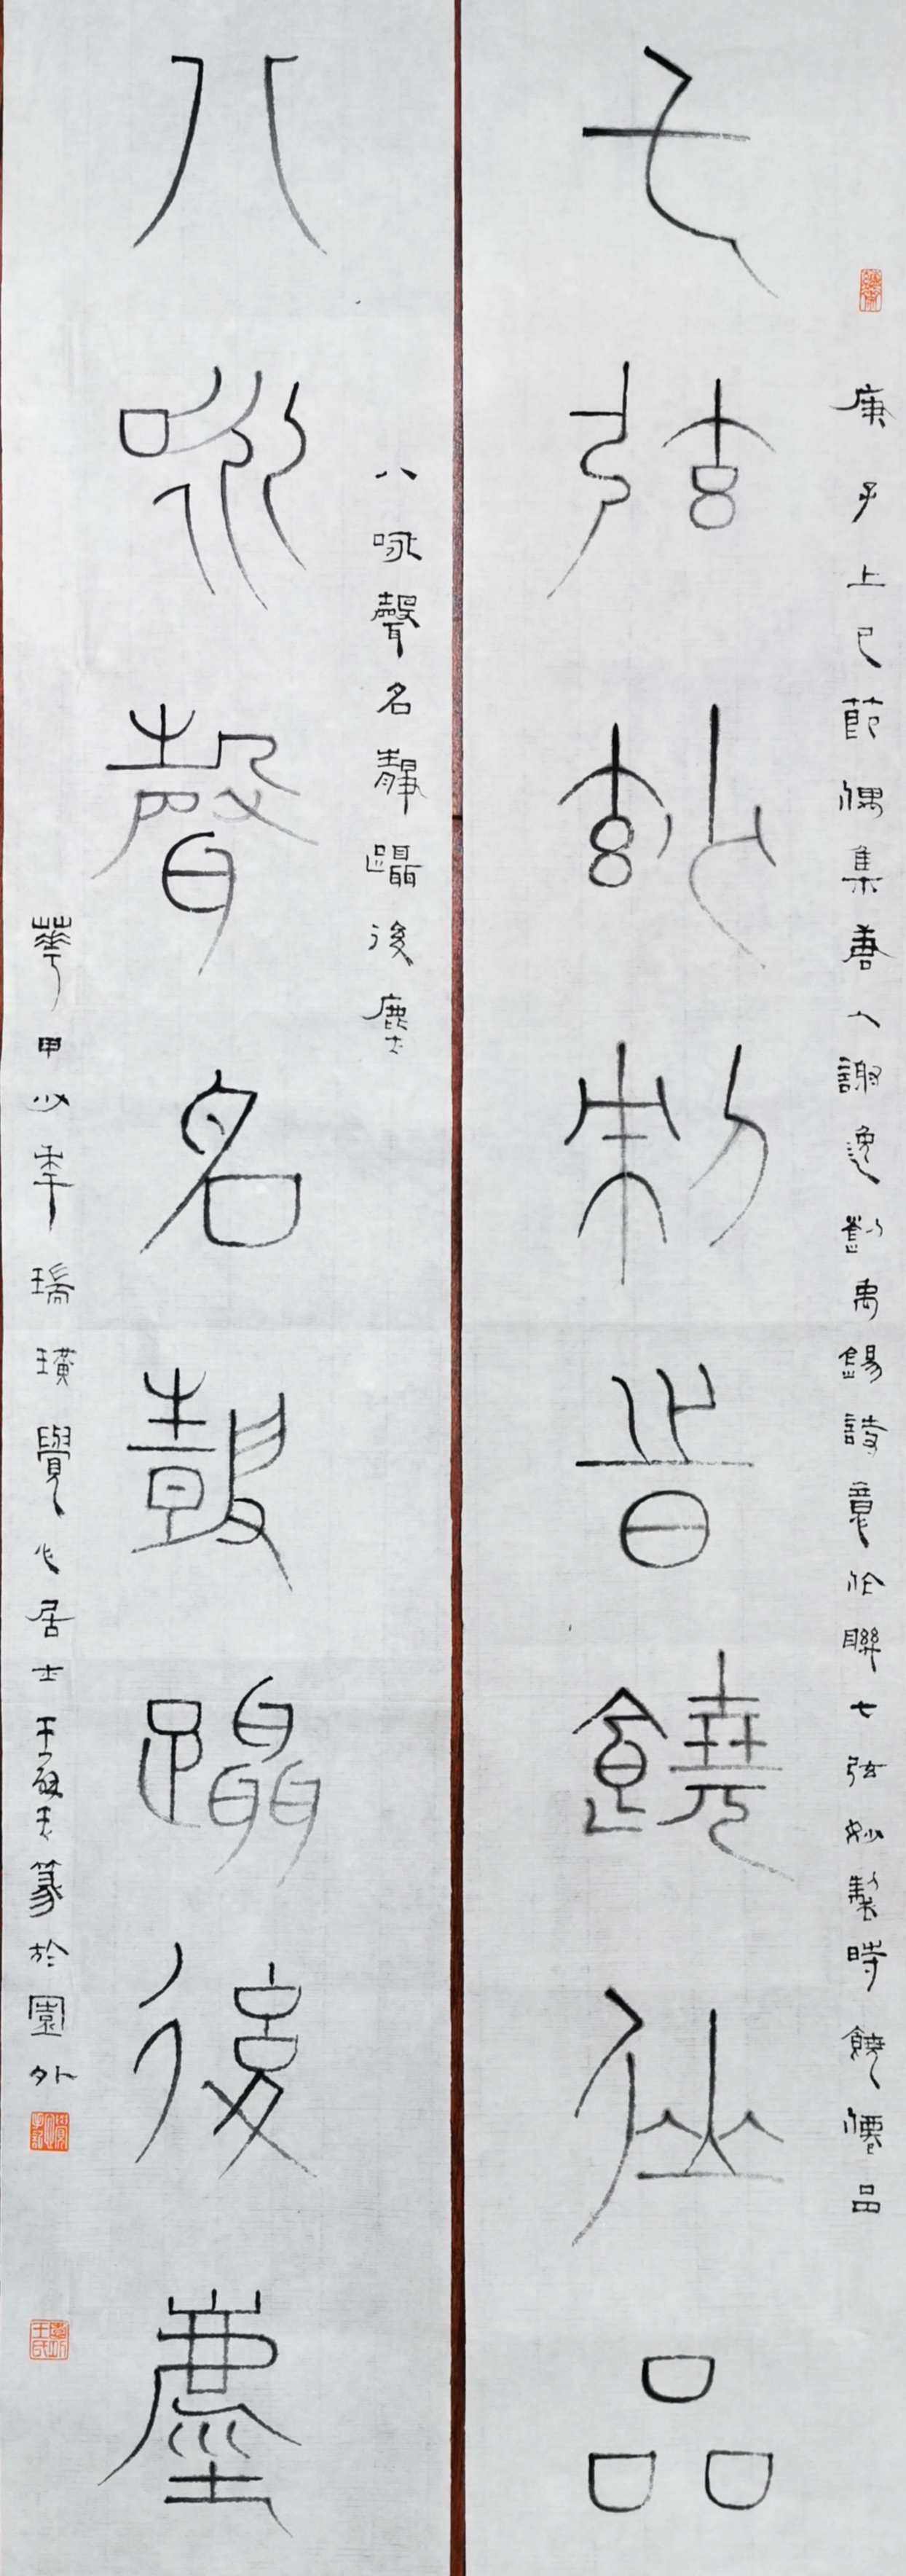 庚子上巳節偶集唐人謝逸劉禹錫詩意作聯七弦妙製時饒僊品
七弦妙制時饒仙品
八詠聲名靜躡後塵
八咏聲名靜躡後塵
華甲少年瑀璜覺心居士王篆於園外